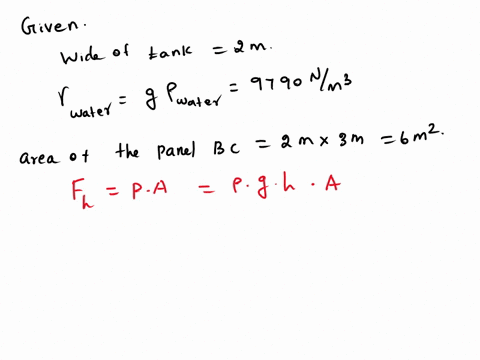 Given.
Wide of tank = 2m.
γwater = g ρwater = 9790 N/m³
area of the panel BC = 2m × 3m = 6m².
Fh = P.A = ρ.g.h . A